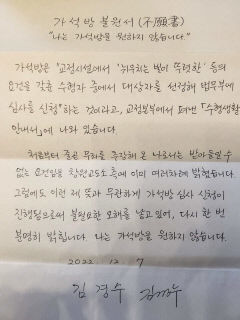 가석방 불원서 (不願書)
"나는 가석방을 원하지 않습니다."
가석방은 "교정시설에서 '뉘우치는 빛이 뚜렷한' 등의
요건을 갖춘 수형자 중에서 대상자를 선정해 법무부에
심사를 신청"하는 것이라고, 교정본부에서 펴낸 『수형생활
안내서』에 나와 있습니다.
처음부터 줄곧 무죄를 주장해 온 나로서는 받아들일 수
없는 요건임을 창원교도소 측에 이미 여러차례 밝혔습니다.
그럼에도 이런 제 뜻과 무관하게 가석방 심사 신청이
진행됨으로써 불필요한 오해를 낳고 있어, 다시 한 번
분명히 밝힙니다. 나는 가석방을 원하지 않습니다.
2022. 12. 7
김 경수 김경수